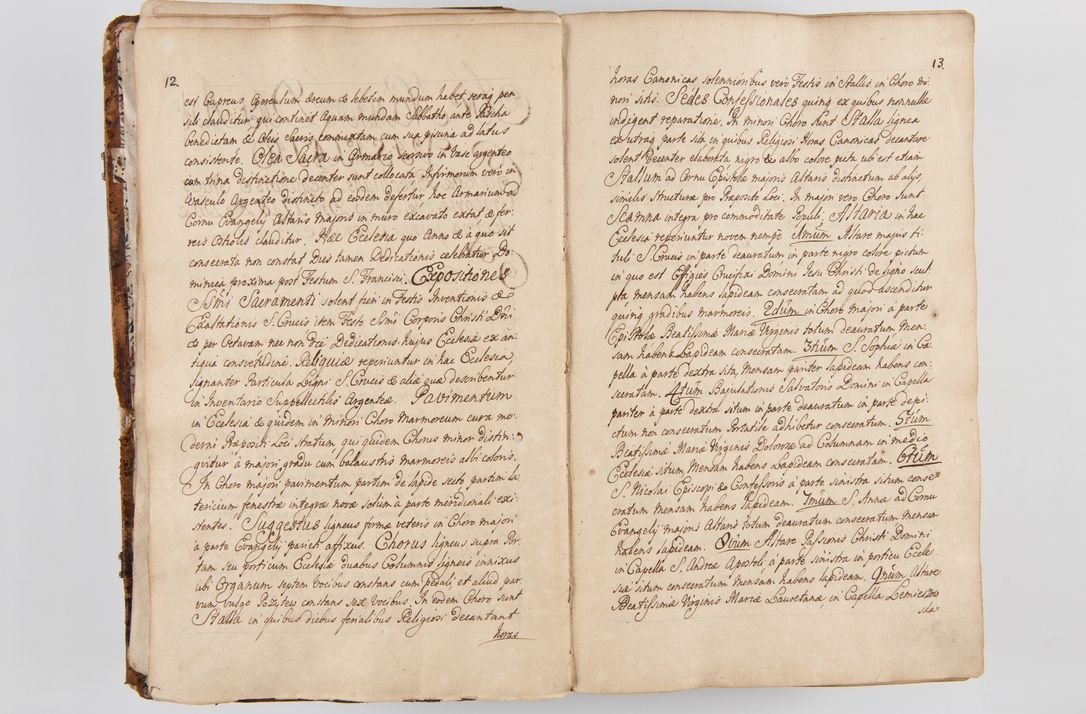 12
est Cupreus operculum æreum & lebetem mundum habet serag per
sili clauditur qui continet Aquam mundam Sabbatho ante Pascha
benedictam & Oleis Sacris commixtam cum sua piscina ad latus
consistente. Olea Sacra in Armario seorsivo in Vase argenteo
cum trina distinctione decenter sunt collocata. Infirmorum vero in
Vasculo Argenteo distincto ad eosdem defertur hoc Armarium ad
Cornu Evangelij Altaris majoris in muro excavato extat & fer-
reis Ostiolis clauditur. Hæc Ecclesia quo Anno & à quo sit
consecrata non constat Dies tamen Dedicationis celebratur Do-
minica proxima post Festum S. Francisci. Expositiones
Ssmi Sacramenti solent fieri in Festis Inventionis &
Exaltationis S. Crucis item Festo Ssmi Corporis Christi Dni
& per Octavam nec non Die Dedicationis hujus Ecclesiæ ex an-
tiqua consvetudine. Reliquiæ reperiuntur in hac Ecclesia
signanter Particula Ligni S. Crucis & aliæ quæ describentur
in Inventario Suppellectilis Argenteæ. Pavimentum
in Ecclesia & quidem in minori Choro Marmoreum cura mo-
derni Præpositi Loci stratum, qui quidem Chorus minor distin-
guitur à majori gradu cum balaustris marmoreis albi coloris.
In Choro majori pavimentum partim de lapide secto partim la-
tericium fenestræ integræ novæ solum à parte meridionali exi-
stentes. Suggestus ligneus formæ veteris in Choro majori
à parte Evangelij parieti affixus. Chorus ligneus supra Por-
tam seu porticum Ecclesiæ duabus Columnis ligneis innixus
ubi Organum septem Vocibus constans cum pedali, et aliud par-
vum vulgo Pozytew constans sex Vocibus. In eodem Choro sunt
Stalla in quibus diebus ferialibus Religiosi decantant
horas
13
horas Canonicas solennioribus vero Festis in Stallis in Choro mi-
nori sitis. Sedes Confessionales quinq ex quibus nonnullæ
indigent reparatione. In minori Choro sunt Stalla lignea
ex utraq parte sita in quibus Religiosi Horas Canonicas decantare
solent Decenter elaborata nigro & albo colore picta ubi est etiam
Stallum ad Cornu Epistolæ majoris Altaris distinctum ab alijs
similis Structuræ pro Præposito Loci. In majori vero Choro sunt
Scamna integra pro commoditate Populi. Altaria in hac
Ecclesia reperiuntur novem nempè Imum Altare majus ti-
tuli S. Crucis in parte deauratum in parte nigro colore pictum
in quo est Effigies Crucifixi Domini Jesu Christi de ligno scul-
pta mensam habens lapideam consecratam ad quod ascenditur
quinq gradibus marmoreis. 2dum in Choro majori à parte
Epistolæ Beatissimæ Mariæ Virginis totum deauratum men-
sam habens Lapideam consecratam. 3tium S. Sophiæ in Ca-
pella à parte dextra sita, Mensam pariter lapideam habens con-
secratam. 4tum Bajulationis Salvatoris Domini in Capella
pariter à parte dextra situm in parte deauratum in parte depi-
ctum non consecratum Portatile adhibetur consecratum. 5tum
Beatissimæ Mariæ Virginis Dolorosæ ad Columnam in medio
Ecclesiæ situm, Mensam habens Lapideam consecratam. 6tum
S. Nicolai Episcopi & Confessoris à parte sinistra situm conse-
cratum Mensam habens lapideam. 7mum S. Annæ ad Cornu
Evangelij majoris Altaris totum deauratum consecratum mensam
habens lapideam. 8vum Altare Passionis Christi Domini
in Capella S. Andreæ Apostoli à parte sinistra in porticu Eccle-
siæ situm consecratum Mensam habens lapideam. 9num Altare
Beatissimæ Virginis Mariæ Lauretanæ in Capella Lemieszow
sla-